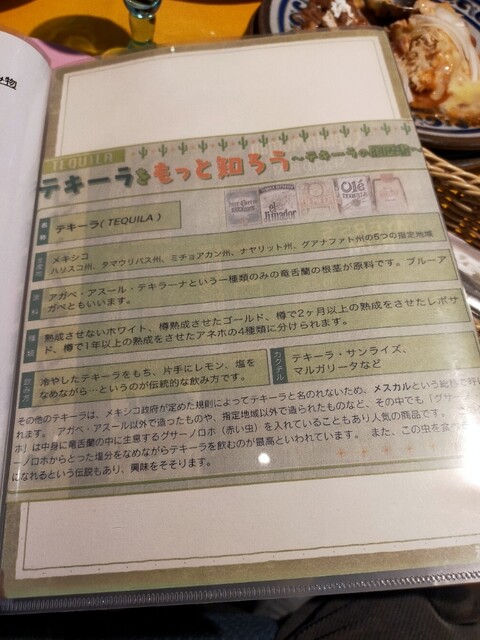 み物
TEQUILA
テキーラをもっと知ろう～テキーラの
el Jimador
Olé
名称 テキーラ( TEQUILA )
メキシコ
ハリスコ州、タマウリパス州、ミチョアカン州、ナヤリット州、グアナファト州の5つの指定地域
原料 アガベ・アスール・テキラーナという一種類のみの竜舌蘭の根茎が原料です。ブルーア
ガベともいいます。
種類 熟成させないホワイト、樽熟成させたゴールド、樽で2ヶ月以上の熟成をさせたレポサ
ド、樽で1年以上の熟成をさせたアネホの4種類に分けられます。
飲み方 冷やしたテキーラをもち、片手にレモン、塩を
なめながら…というのが伝統的な飲み方です。
カクテル テキーラ・サンライズ、
マルガリータなど
その他のテキーラは、メキシコ政府が定めた規則によってテキーラと名のれないため、メスカルという総称で呼
れます。 アガベ・アスール以外で造ったものや、指定地域以外で造られたものなど、その中でも「グサー
ホ」は中身に竜舌蘭の中に生息するグサーノロホ（赤い虫）を入れていることもあり人気の商品です。
ーノロホからとった塩分をなめながらテキーラを飲むのが最高といわれています。 また、この虫を食べ
になれるという伝説もあり、興味をそそります。